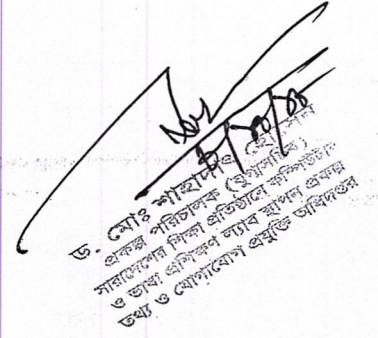 ড. মোঃ
প্রকল্প পরিচালক
সারাদেশের শিক্ষা প্রতিষ্ঠানে কম্পিউটার
ও ভাষা প্রশিক্ষণ ল্যাব স্থাপন প্রকল্প
তথ্য ও যোগাযোগ প্রযুক্তি অধিদপ্তর